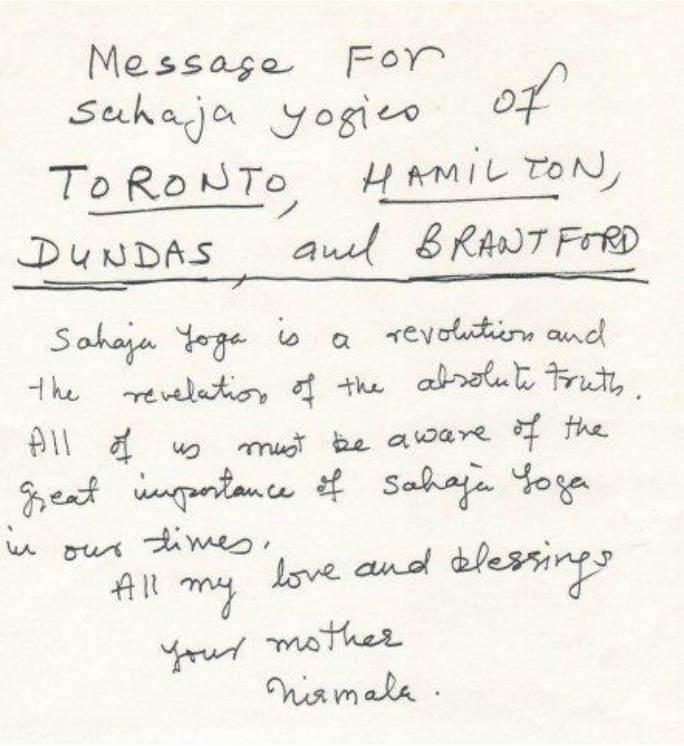 Message For
Sahaja yogies of
TORONTO, HAMILTON,
DUNDAS, and BRANTFORD
Sahaja Yoga is a revolution and
the revelation of the absolute truth.
All of us must be aware of the
great importance of Sahaja Yoga
in our times.
All my love and blessings
your mother
Nirmala.